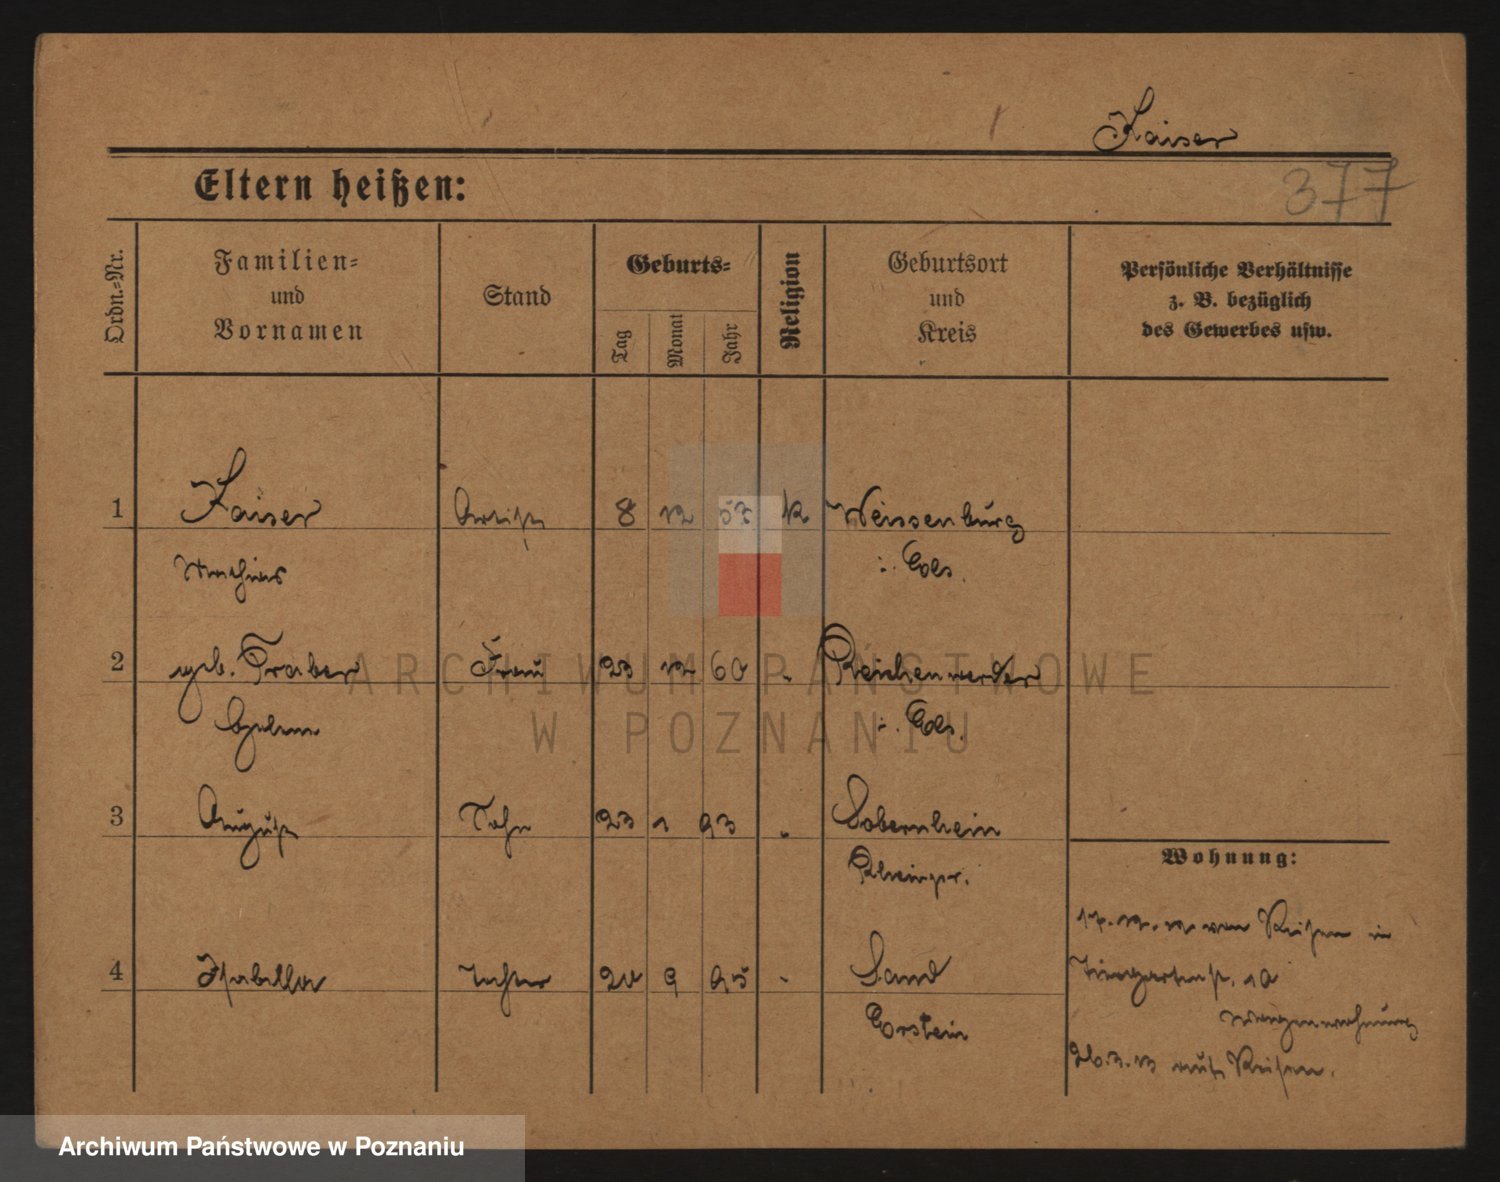 Kaiser
377
Eltern heißen:
Ordn.-Nr.
Familien-
und
Vornamen
Stand
Geburts-
Tag
Monat
Jahr
Religion
Geburtsort
und
Kreis
Persönliche Verhältnisse
z. B. bezüglich
des Gewerbes usw.
1 Kaiser Artist 8 12 57 k Weissenburg
Mathias i. Els.
2 geb. Traber Frau 23 12 60 " Reichenwerder
i. Els.
3 August Sohn 23 1 93 " Sobernheim
Rheinpr.
4 Isabella Tochter 20 9 95 " Sand
Erstein
Wohnung:
17. 12. 12 von Reisen in
Tiergartenstr. 10
Wagenwohnung
26. 3. 13 auf Reisen.
ARCHIWUM PAŃSTWOWE
W POZNANIU
Archiwum Państwowe w Poznaniu